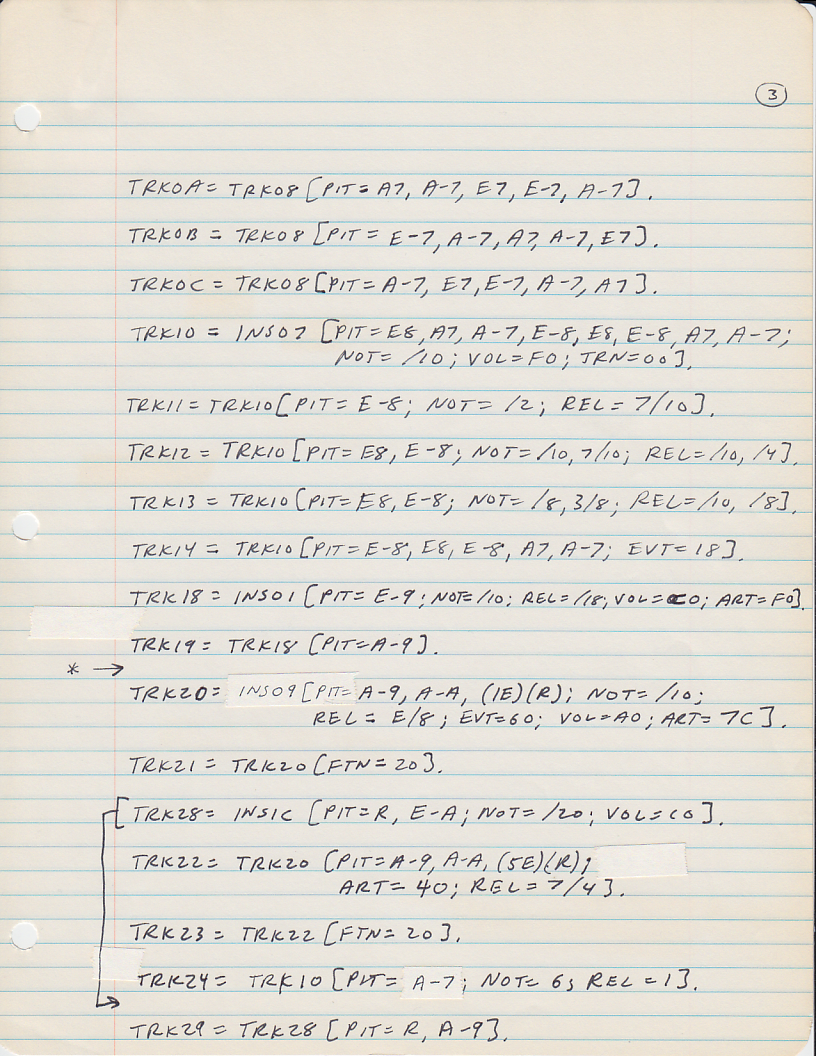 3
TRK0A = TRK08 [PIT = A7, A-7, E7, E-7, A-7].
TRK0B = TRK08 [PIT = E-7, A-7, A7, A-7, E7].
TRK0C = TRK08 [PIT = A-7, E7, E-7, A-7, A7].
TRK10 = INS07 [PIT = E8, A7, A-7, E-8, E8, E-8, A7, A-7;
NOT = /10; VOL = F0; TRN = 00].
TRK11 = TRK10 [PIT = E-8; NOT = /2; REL = 7/10].
TRK12 = TRK10 [PIT = E8, E-8; NOT = /10, 7/10; REL = /10, /4].
TRK13 = TRK10 [PIT = E8, E-8; NOT = /8, 3/8; REL = /10, /8].
TRK14 = TRK10 [PIT = E-8, E8, E-8, A7, A-7; EVT = 18].
TRK18 = INS01 [PIT = E-9; NOT = /10; REL = /18; VOL = C0; ART = F0].
TRK19 = TRK18 [PIT = A-9].
* →
TRK20 = INS09 [PIT = A-9, A-A, (1E)(R); NOT = /10;
REL = E/8; EVT = 60; VOL = A0; ART = 7C].
TRK21 = TRK20 [FTN = 20].
TRK28 = INS1C [PIT = R, E-A; NOT = /20; VOL = C0].
TRK22 = TRK20 [PIT = A-9, A-A, (5E)(R);
ART = 40; REL = 7/4].
TRK23 = TRK22 [FTN = 20].
TRK24 = TRK10 [PIT = A-7; NOT = 6; REL = 1].
TRK29 = TRK28 [PIT = R, A-9].